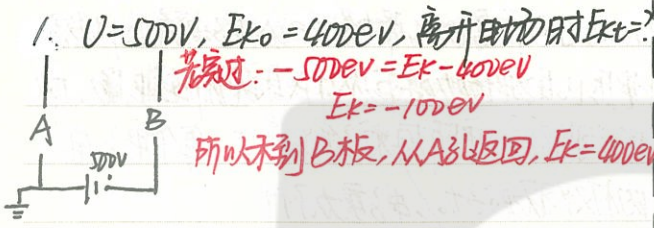 1. U=500V, Ek₀=400eV, 离开电场时Ekt=?
若穿过:-500eV=Ek-400eV
Ek=-100eV
A
B
500V
所以未到B板,从A孔返回,Ek=400eV